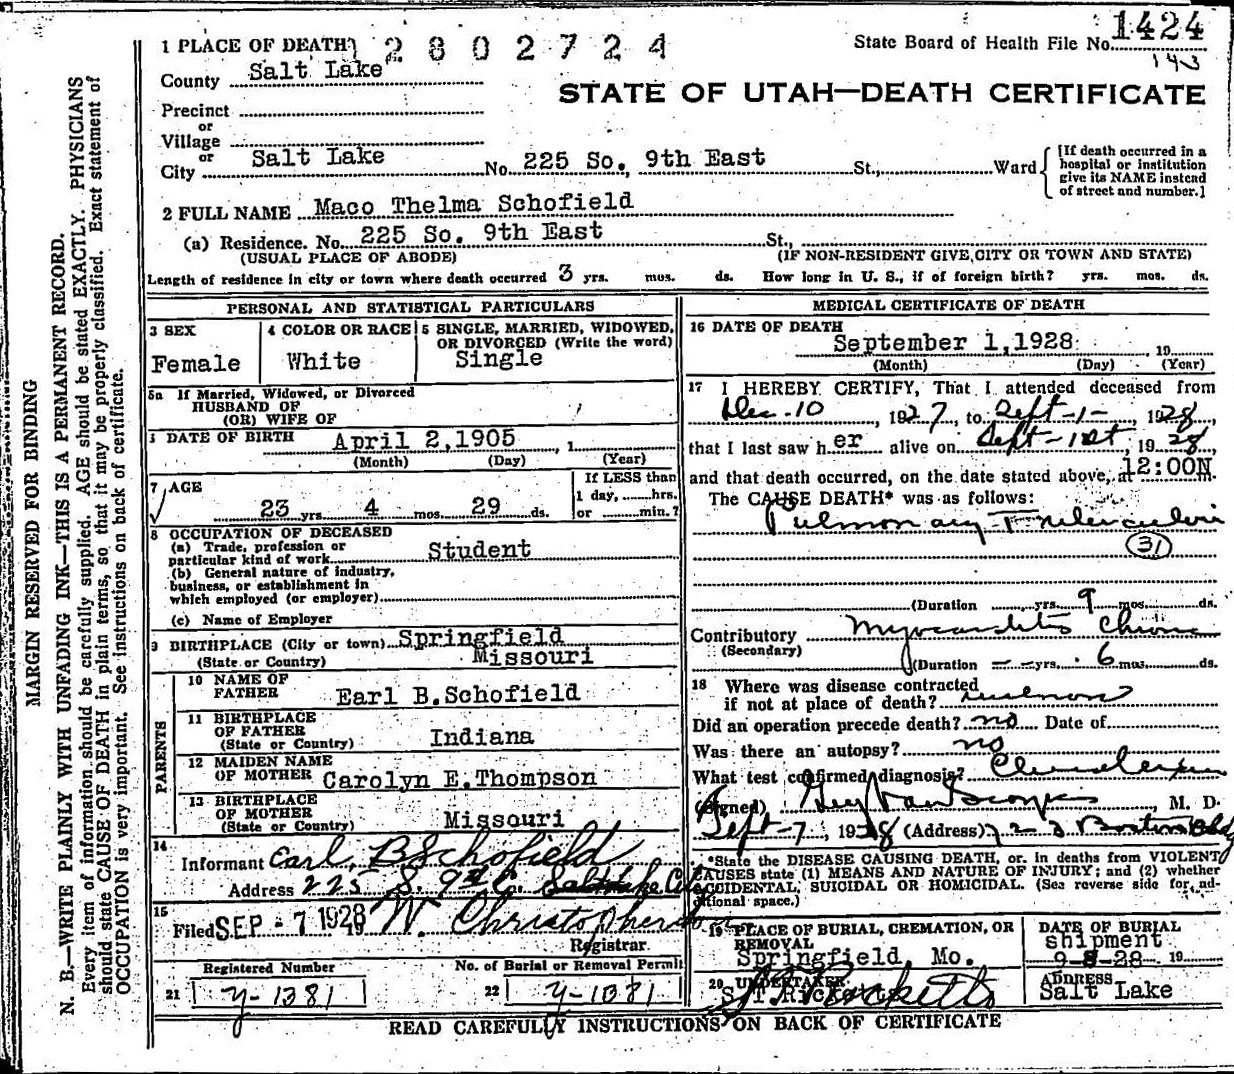 1 PLACE OF DEATH 2802724 State Board of Health File No. 1424
143
County Salt Lake
STATE OF UTAH—DEATH CERTIFICATE
Precinct
or
Village
or
City Salt Lake No. 225 So. 9th East St., Ward
[If death occurred in a hospital or institution give its NAME instead of street and number.]
2 FULL NAME Maco Thelma Schofield
(a) Residence. No. 225 So. 9th East St.,
(USUAL PLACE OF ABODE) (IF NON-RESIDENT GIVE CITY OR TOWN AND STATE)
Length of residence in city or town where death occurred 3 yrs. mos. ds. How long in U. S., if of foreign birth? yrs. mos. ds.
PERSONAL AND STATISTICAL PARTICULARS
3 SEX Female
4 COLOR OR RACE White
5 SINGLE, MARRIED, WIDOWED, OR DIVORCED (Write the word) Single
5a If Married, Widowed, or Divorced
HUSBAND OF
(OR) WIFE OF
DATE OF BIRTH April 2,1905, 1
(Month) (Day) (Year)
7 AGE 23 yrs. 4 mos. 29 ds.
If LESS than
1 day, hrs.
or min.?
8 OCCUPATION OF DECEASED
(a) Trade, profession or
particular kind of work Student
(b) General nature of industry,
business, or establishment in
which employed (or employer)
(c) Name of Employer
9 BIRTHPLACE (City or town) Springfield
(State or Country) Missouri
PARENTS
10 NAME OF
FATHER Earl B.Schofield
11 BIRTHPLACE
OF FATHER
(State or Country) Indiana
12 MAIDEN NAME
OF MOTHER Carolyn E.Thompson
13 BIRTHPLACE
OF MOTHER
(State or Country) Missouri
14
Informant Earl B Schofield
Address 225 S. 9th E. Salt Lake City
15
Filed SEP - 7 1928 W. Christopherson
Registrar
Registered Number No. of Burial or Removal Permit
21 y-1381 22 y-1381
MEDICAL CERTIFICATE OF DEATH
16 DATE OF DEATH
September 1,1928, 19
(Month) (Day) (Year)
17 I HEREBY CERTIFY, That I attended deceased from
Dec. 10, 1927, to Sept-1-, 1928,
that I last saw her alive on Sept-1st, 1928,
and that death occurred, on the date stated above, at 12:00N m.
The CAUSE DEATH* was as follows:
Pulmonary Tuberculosis
31
(Duration yrs. 9 mos. ds.
Contributory Myocarditis Chronic
(Secondary)
(Duration yrs. 6 mos. ds.
18 Where was disease contracted
if not at place of death?
Did an operation precede death? no Date of
Was there an autopsy? no
What test confirmed diagnosis?
(Signed) M. D.
Sept-7, 1928 (Address) Boston Bldg
*State the DISEASE CAUSING DEATH, or. in deaths from VIOLENT
CAUSES state (1) MEANS AND NATURE OF INJURY; and (2) whether
ACCIDENTAL, SUICIDAL OR HOMICIDAL. (See reverse side for ad-
ditional space.)
19 PLACE OF BURIAL, CREMATION, OR
REMOVAL
Springfield, Mo.
DATE OF BURIAL
shipment
9-8-28 19
20 UNDERTAKER
S T Ricketts
ADDRESS
Salt Lake
READ CAREFULLY INSTRUCTIONS ON BACK OF CERTIFICATE
MARGIN RESERVED FOR BINDING
N. B.—WRITE PLAINLY WITH UNFADING INK—THIS IS A PERMANENT RECORD.
Every item of information should be carefully supplied. AGE should be stated EXACTLY. PHYSICIANS
should state CAUSE OF DEATH in plain terms, so that it may be properly classified. Exact statement of
OCCUPATION is very important. See instructions on back of certificate.